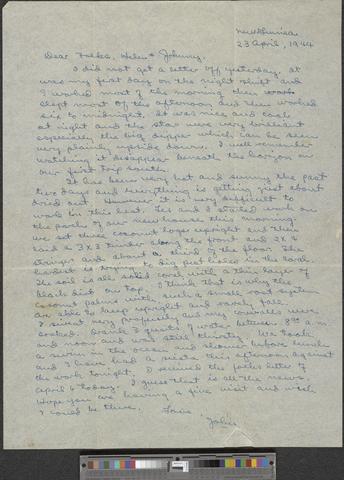 New Guinea
23 April, 1944
Dear Folks, Helen & Johnny,
I did not get a letter off yesterday. It
was my first day on the night shift and
I worked most of the morning then
slept most of the afternoon and then worked
six to midnight. It was nice and cool
at night and the stars were very brilliant
especially the big dipper which can be seen
very plainly upside down. I well remember
watching it disappear beneath the horizon on
our first trip south.
It has been very hot and sunny the past
two days and everything is getting just about
dried out. However it is very difficult to
work in this heat. Les and I started work on
the porch of our new house this morning.
We set three coconut logs upright and then
laid a 3x3 timber along the front and 2x3
stringers and about a third of the floor. The
hardest is trying to dig post holes in the coral.
The soil is all solid coral with a thin layer of
black dirt on top. I think that is why the
cocoanut palms with such a small root system
are able to keep upright and rarely fall.
I sweat very properly and my coveralls were
soaked. Drank 2 quarts of water between 8 a.m.
and noon and was still thirsty. We took
a swim in the ocean and shower before lunch
and I have had a siesta this afternoon against
the work tonight. I received the folks letter of
April 6 today. I guess that is all the news.
Hope you are having a fine visit and wish
I could be there.
Love,
John